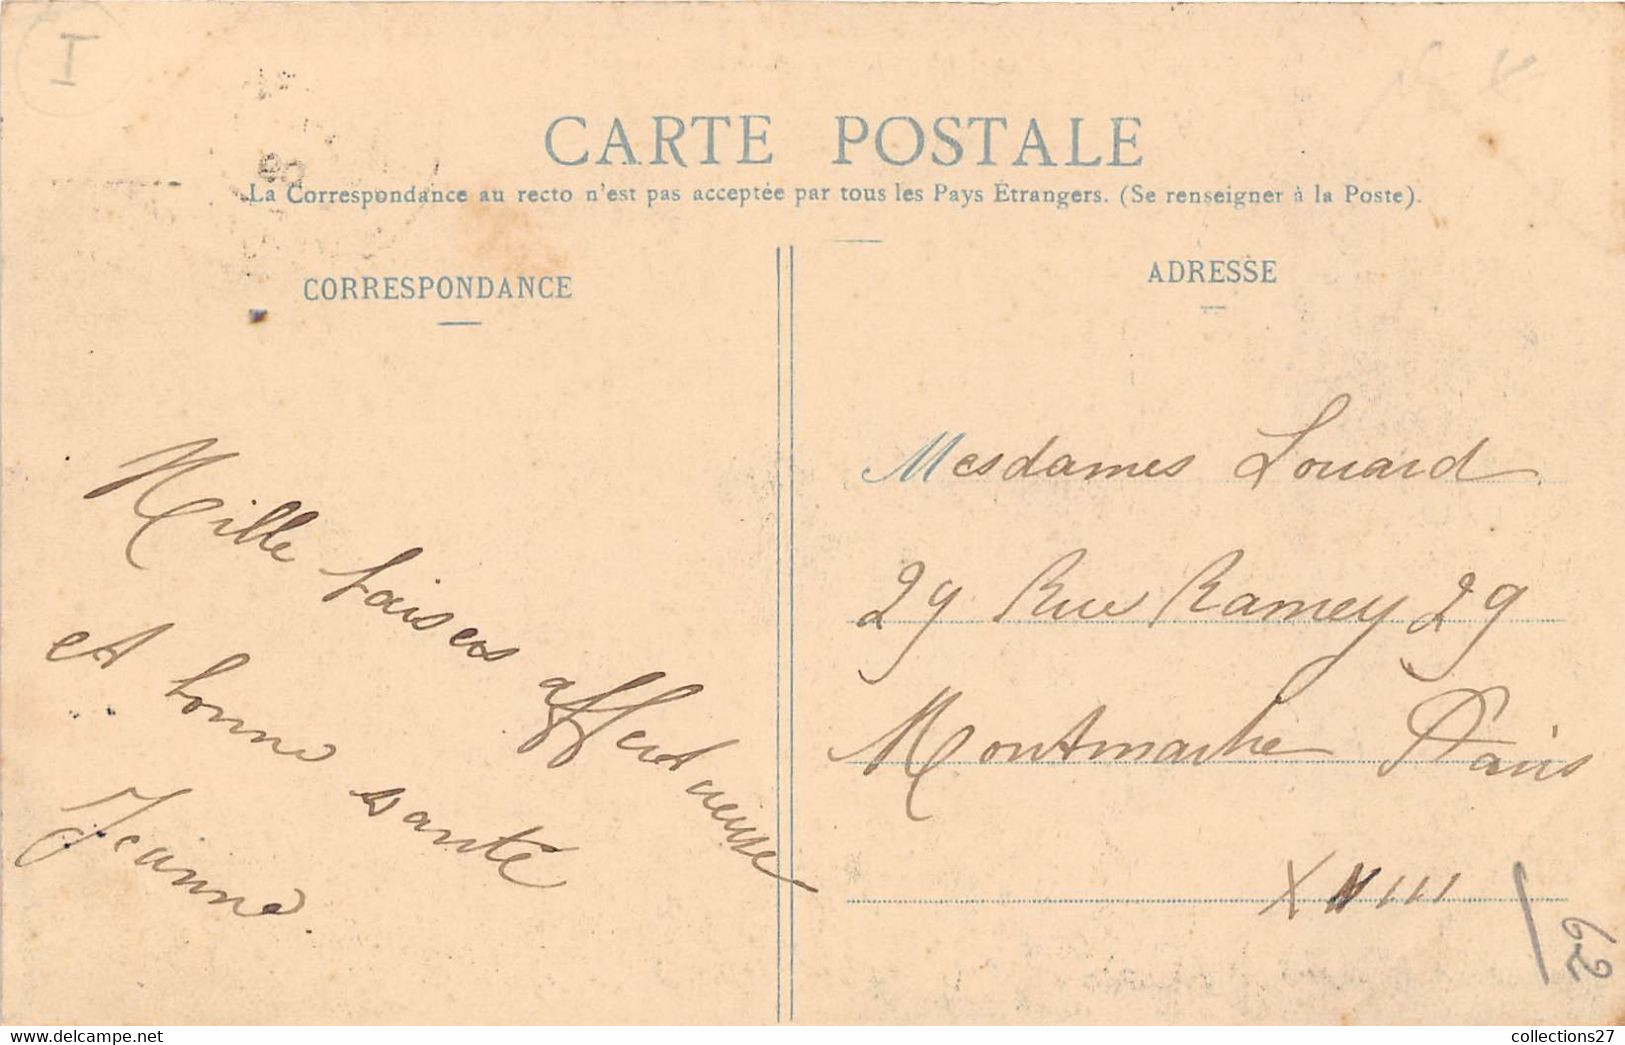 I
CARTE POSTALE
La Correspondance au recto n'est pas acceptée par tous les Pays Étrangers. (Se renseigner à la Poste).
CORRESPONDANCE
Mille baisers affectueuse
et bonne santé
Jeanne
ADRESSE
Mesdames Louard
29 Rue Ramey 29
Montmartre Paris
62
www.delcampe.net
collections27